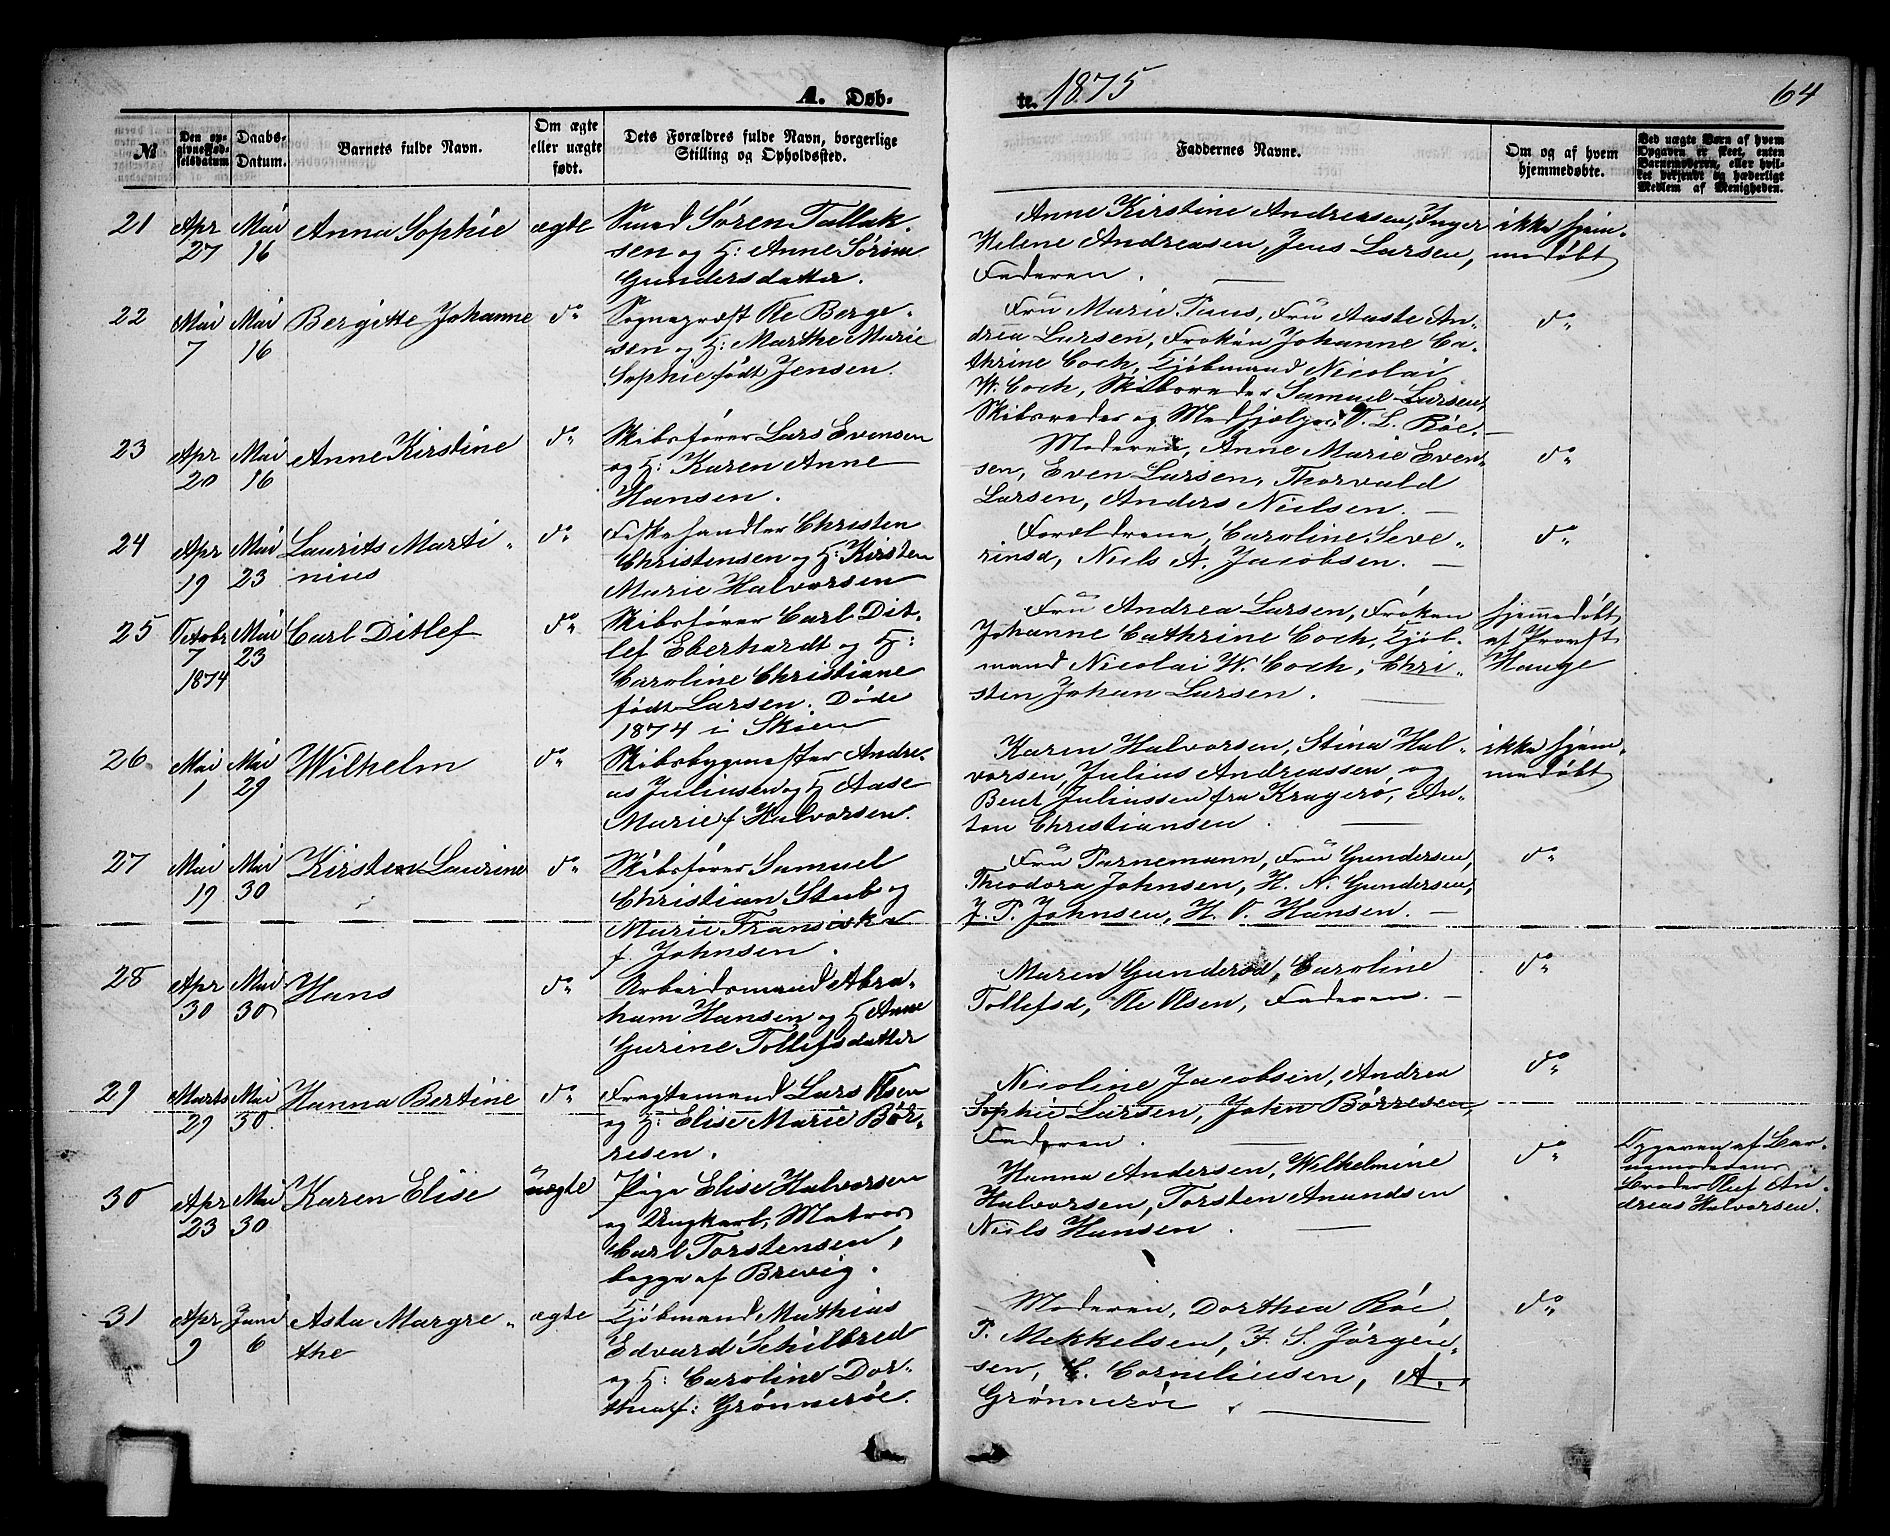 A. Døb-
te. 1875
64
№
Den op-
givne Fød-
selsdatum
Daabs-
Datum.
Barnets fulde Navn.
Om ægte
eller uægte
født.
Dets Forældres fulde Navn, borgerlige
Stilling og Opholdssted.
Faddernes Navne.
Om og af hvem
hjemmedøbte.
Ved uægte Børn af hvem
Opgaven er skeet, enten
Barnemoderen, eller hvil-
ket bekjendt og hæderligt
Medlem af Menigheden.
21 Apr 27 Mai 16 Anna Sophie ægte
Smed Søren Tallak-
sen og H: Anne Sørine
Gundersdatter.
Anne Kirstine Andreasen, Inger
Helene Andreasen, Jens Larsen,
Faderen.
ikke hjem-
medøbt
22 Mai 7 Mai 16 Bergitte Johanne do
Sognepræst Ole Berge-
sen og H: Marthe Marie
Sophie født Jensen.
Fru Marie Paus, Fru Aaste An-
drea Larsen, Frøken Johanne Ca-
thrine Coch, Kjøbmand Nicolai
W. Coch, Skibsreder Samuel Larsen,
Skibsreder og Medhjælper O. L. Røe.
do
23 Apr 20 Mai 16 Anne Kirstine do
Skibsfører Lars Evensen
og H: Karen Anne
Hansen.
Moderen, Anne Marie Even-
sen, Even Larsen, Thorvald
Larsen, Anders Nielsen.
do
24 Apr 19 Mai 23 Laurits Marti-
nius do
Fiskehandler Christen
Christensen og H: Kirsten
Marie Halvorsen
Forældrene, Caroline Seve-
rinsd, Niels A. Jacobsen.
do
25 Octobr 7 1874 Mai 23 Carl Ditlef do
Skibsfører Carl Dit-
lef Eberhardt og H:
Caroline Christiane
født Larsen. Døde
1874 i Skien
Fru Andrea Larsen, Frøken
Johanne Cathrine Coch, Kjøb-
mand Nicolai W. Coch, Chri-
sten Johan Larsen.
hjemmedøbt
af Provst
Hauge
26 Mai 1 Mai 29 Wilhelm do
Skibsbygmester Andre-
as Juliusen og H Aase
Marie f. Halvorsen.
Karen Halvorsen, Stina Hal-
vorsen, Julius Andreassen og
Bent Juliussen fra Kragerø, An-
ton Christiansen.
ikke hjem-
medøbt
27 Mai 19 Mai 30 Kirsten Laurine do
Skibsfører Samuel
Christian Stub og
Marie Franciska
f. Johnsen.
Fru Parnemann, Fru Gundersen,
Theodora Johnsen, H. N. Gundersen,
J. P. Johnsen, H. O. Hansen.
do
28 Apr 30 Mai 30 Hans do
Arbeidsmand Abra-
ham Hansen og H Anne
Gurine Tollefsdatter
Maren Gundersd, Caroline
Tollefsd, Ole Olsen, Faderen.
do
29 Marts 29 Mai 30 Hanna Bertine do
Fragtemand Lars Olsen
og H: Elise Marie Bør-
resen.
Nicoline Jacobsen, Andrea
Sophie Larsen, John Børresen,
Faderen.
do
30 Apr 23 Mai 30 Karen Elise uægte
Pige Elise Halvorsen
og Ungkarl, Matros
Carl Torstensen,
begge af Brevig.
Hanna Andersen, Wilhelmine
Halvorsen, Torsten Anundsen
Niels Hansen.
do
Opgaven af Bar-
nemoderens
Broder Oluf An-
dreas Halvorsen.
31 Apr 9 Juni 6 Asta Margre-
the ægte
Kjøbmand Mathias
Edvard Schilbred
og H: Caroline Dor-
thea f: Grønnerøe.
Moderen, Dorthea Røe
P. Mekkelsen, J. S. Jørgen-
sen, C. Corneliusen, A.
Grønnerøe.
do